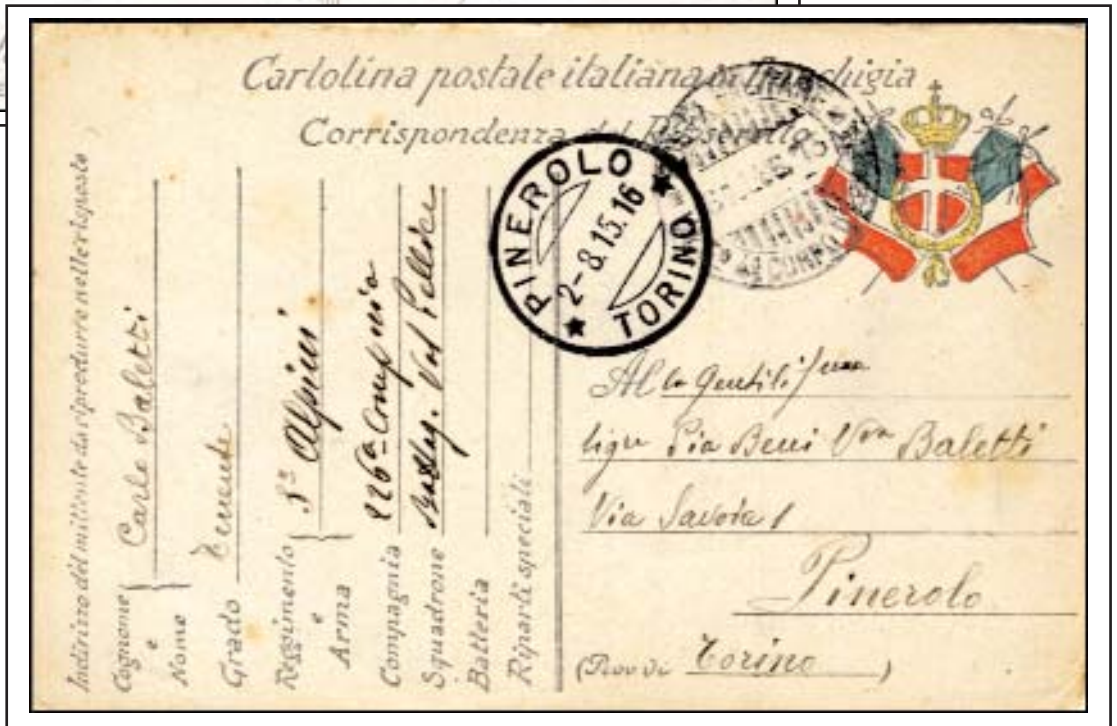 Cartolina postale italiana in franchigia
Corrispondenza del R. Esercito
PINEROLO
2-8.15.16
TORINO
Indirizzo del mittente da riprodurre nelle risposte
Cognome e Nome Carlo Baletti
Grado Tenente
Reggimento e Arma 3º Alpini
Compagnia 226ª Compnia
Squadrone Battag. Val Pellice
Batteria
Riparti speciali
Alla Gentilissma
Sigra Pia Vva Baletti
Via Savoia 1
Pinerolo
(Prov di Torino)